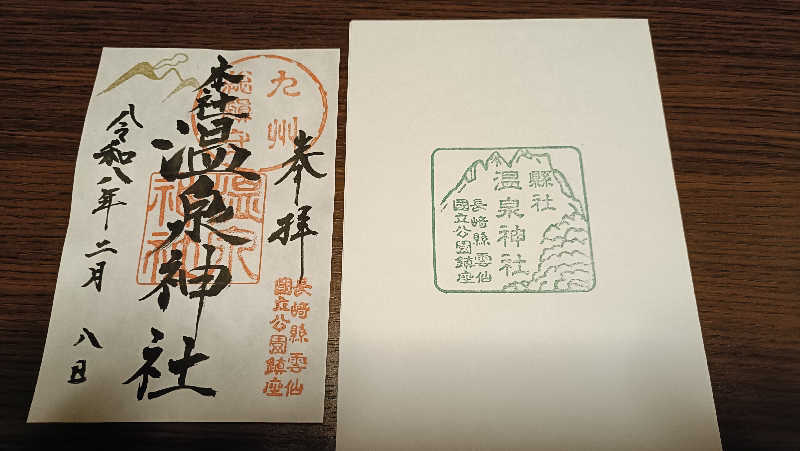 奉拝
九州
総鎮守
本社
温泉神社
温泉
神社
長崎縣雲仙
國立公園鎮座
令和八年二月
八日
縣社
温泉神社
長崎縣雲仙
國立公園鎮座